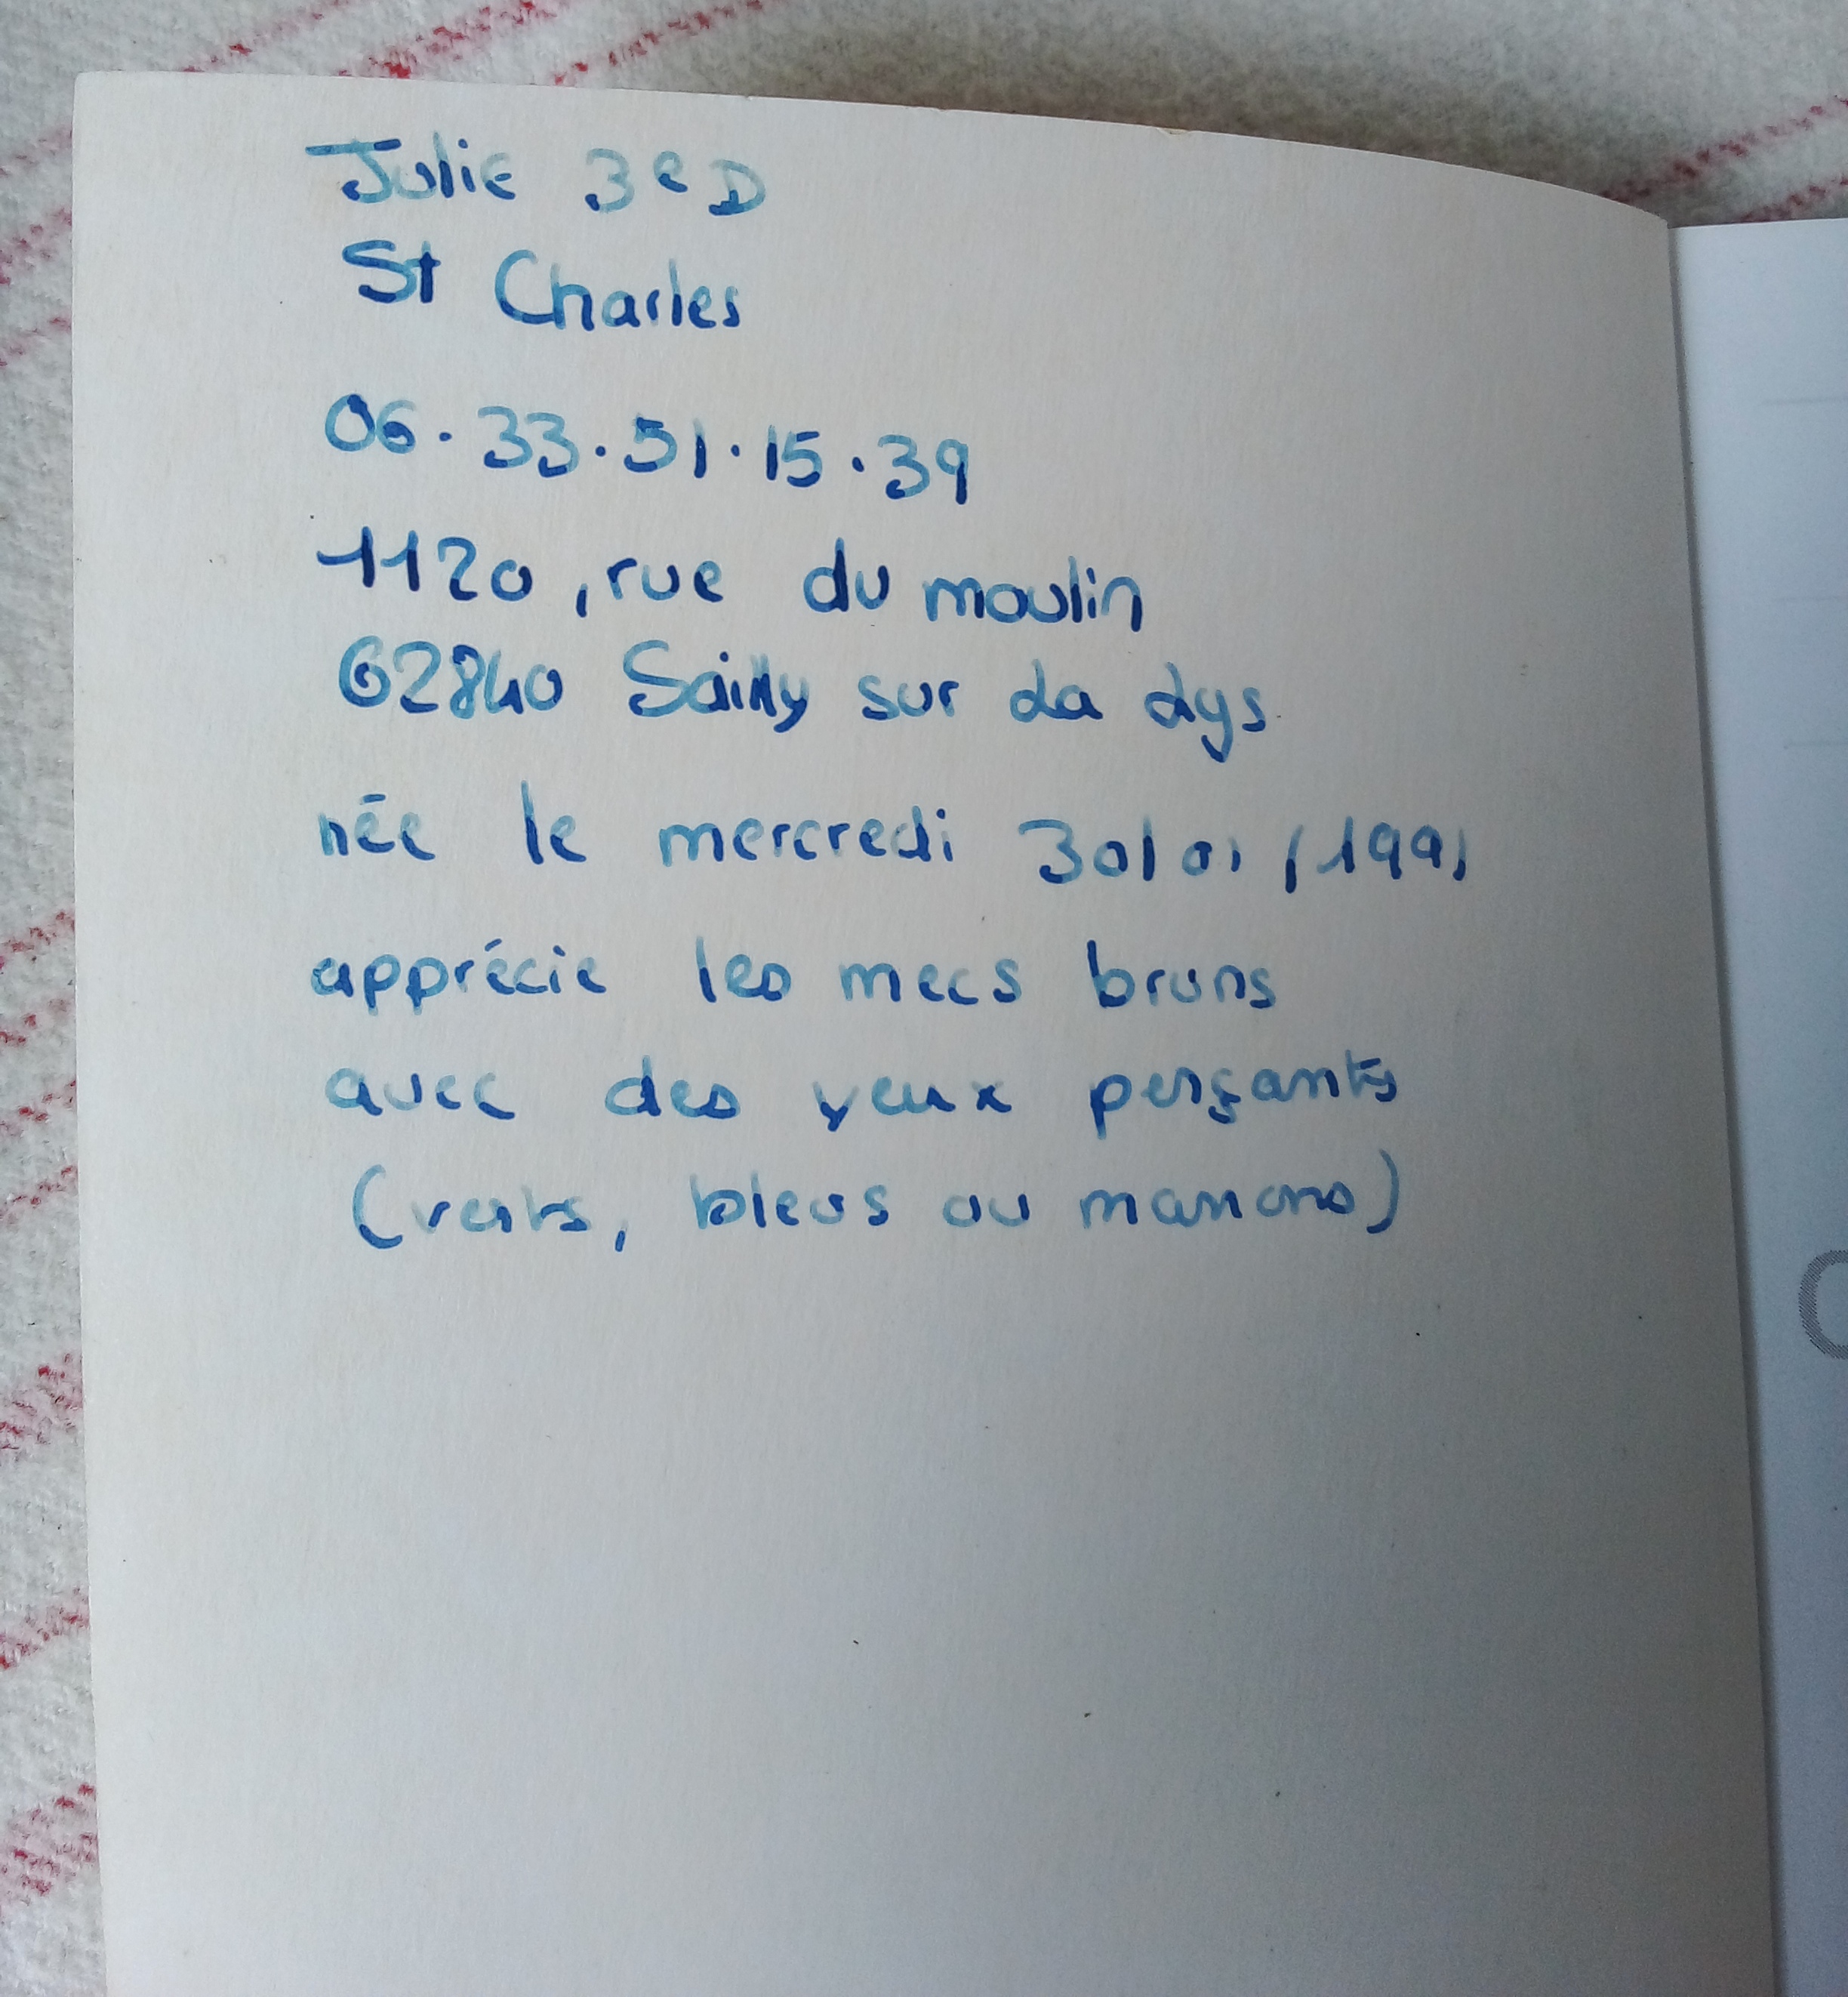 Julie 3e D
St Charles
06.33.51.15.39
1120, rue du moulin
62840 Sailly sur La Lys
née le mercredi 30/01/1991
apprécie les mecs bruns
avec des yeux perçants
(verts, bleus ou marrons)